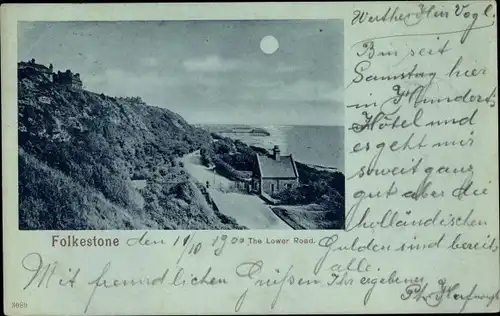 Werther Herr Vogl,
Bin seit
Samstag hier
in
Hôtel und
es geht mir
soweit ganz
gut aber die
holländischen
Folkestone den 11/10 1900 The Lower Road. Gulden sind bereits
alle.
Mit freundlichen Grüßen Ihr ergebener
3089